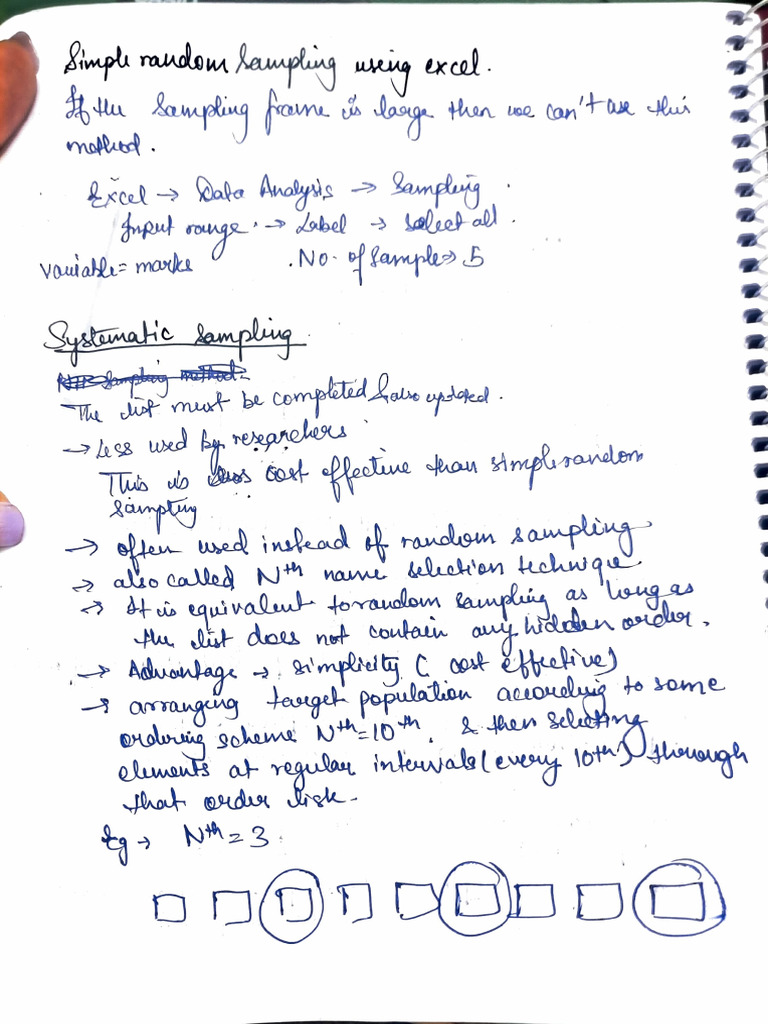 Simple random Sampling using excel.
If the Sampling frame is large then we can't use this
method.
Excel → Data Analysis → Sampling.
Input range → Label → select all.
variable = marks .No. of Sample → 5
Systematic Sampling
Nth Sampling method.
The list must be completed & also updated.
→ Less used by researchers
This is less cost effective than simple random
sampling
→ often used instead of random sampling
→ also called Nth name selection technique
→ It is equivalent to random sampling as long as
the list does not contain any hidden order.
→ Advantage → simplicity ( cost effective)
→ arranging target population according to some
ordering scheme Nth = 10th. & then selecting
elements at regular intervals (every 10th) through
that order lisk.
Eg → Nth = 3